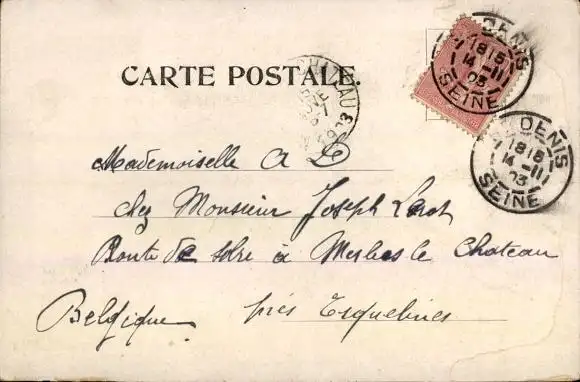 CARTE POSTALE.
DENIS
18 15
14 -11
03
SEINE
DENIS
18 15
14 -11
03
SEINE
Mademoiselle A L
chez Monsieur Joseph
Route de à Merbes le Chateau
Belgique près Esquelines